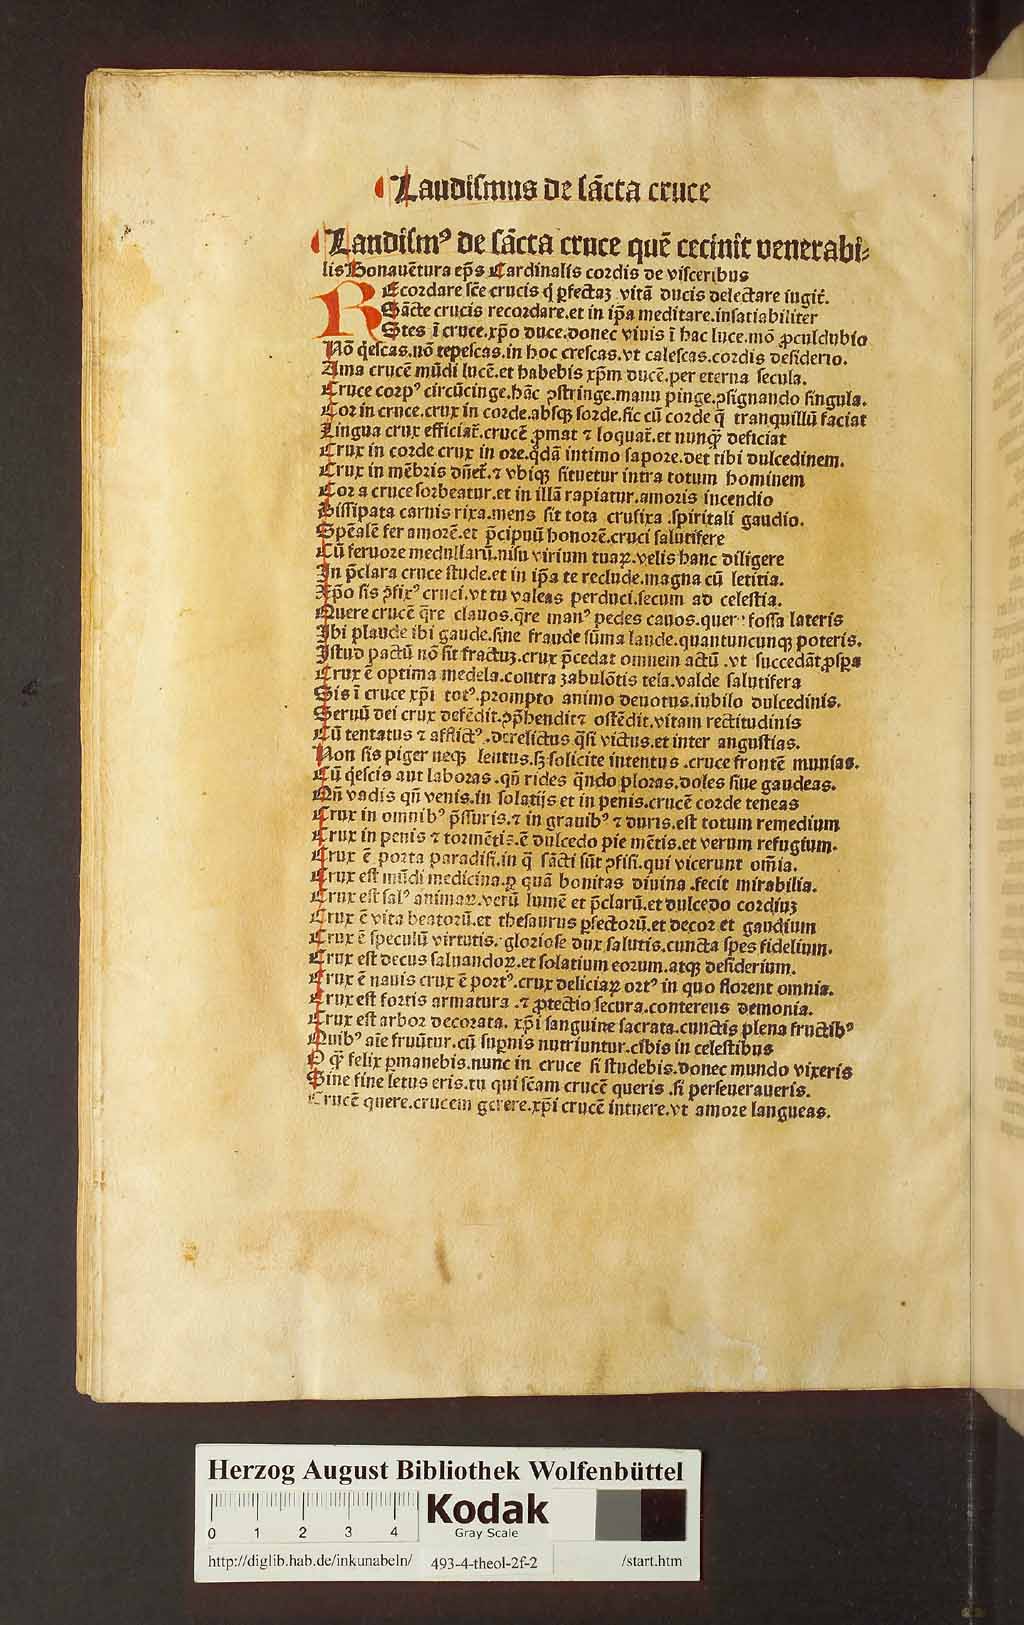 Laudismus de sācta cruce
Laudismꝰ de sācta cruce quē cecinit venerabi⸗
lis Bonauētura ep̄s Cardinalis cordis de visceribus
REcordare sc̄e crucis q̇ ꝑfectaꝫ vitā ducis delectare iugit̄.
Sācte crucis recordare.et in ip̄a meditare.insatiabiliter
Stes ī cruce.xp̄o duce.donec viuis ī hac luce.mō ꝓculdubio
Nō q̇escas.nō tepescas.in hoc crescas.vt calescas.cordis desiderio.
Ama crucē mūdi lucē.et habebis xp̄m ducē.per eterna secula.
Cruce corpꝰ circūcinge.hāc ꝯstringe.manu pinge.ꝯsignando singula.
Cor in cruce.crux in corde.absqꝫ sorde.sic cū corde q̄ tranquillū faciat
Lingua crux efficiat̄.crucē ꝓmat ⁊ loquat̄.et nunqꝙ̄ deficiat
Crux in corde crux in ore.q̇dā intimo sapore.det tibi dulcedinem.
Crux in mēbris dn̄et̄.⁊ vbiqꝫ situetur intra totum hominem
Cor a cruce sorbeatur.et in illā rapiatur.amoris incendio
Dissipata carnis rixa.mens sit tota crufixa .spiritali gaudio.
Spēalē fer amorē.et p̄cipuū honorē.cruci salutifere
Cū feruore medullarū.nisu virium tuaꝝ.velis hanc diligere
In p̄clara cruce stude.et in ip̄a te reclude.magna cū letitia.
Xp̄o sis ꝯfixꝰ cruci.vt tu valeas perduci.secum ad celestia.
Quere crucē q̄re clauos.q̄re manꝰ pedes cauos.quere fossa lateris
Ibi plaude ibi gaude.sine fraude sūma laude.quantuncunqꝫ poteris.
Istud pactū nō sit fractuꝫ.crux p̄cedat omnem actū .vt succedāt ꝓsꝑa
Crux ē optima medela.contra zabulōtis tela.valde salutifera
Sis ī cruce xp̄i totꝰ.prompto animo deuotus.iubilo dulcedinis.
Seruū dei crux defēdit.ꝯp̄hendit⁊ ostēdit.vitam rectitudinis
Cū tentatus ⁊ afflictꝰ.derelictus q̄si victus.et inter angustias.
Non sis piger neqꝫ lentus.sꝫ solicite intentus .cruce frontē munias.
Cū q̇escis aut laboras.qn̄ rides q̄ndo ploras.doles siue gaudeas.
Qn̄ vadis qn̄ venis.in solatijs et in penis.crucē corde teneas
Crux in omnibꝰ p̄ssuris.⁊ in grauibꝰ ⁊ duris.est totum remedium
Crux in penis ⁊ tormētis.ē dulcedo pie mētis.et verum refugium.
Crux ē porta paradisi.in q̄ sācti sūt ꝯfisi.qui vicerunt om̄ia.
Crux est mūdi medicina.ꝑ quā bonitas diuina .fecit mirabilia.
Crux est salꝰ animaꝝ.verū lumē et p̄clarū.et dulcedo cordiuꝫ
Crux ē vita beatorū.et thesaurus ꝑfectorū.et decor et gaudium
Crux ē speculū virtutis. gloriose dux salutis.cuncta spes fidelium.
Crux est decus saluandoꝝ.et solatium eorum.atqꝫ desiderium.
Crux ē nauis crux ē portꝰ.crux deliciaꝝ ortꝰ in quo florent omnia.
Crux est fortis armatura .⁊ ꝓtectio secura.conterens demonia.
Crux est arbor decorata. xp̄i sanguine sacrata.cunctis plena fructibꝰ
Quibꝰ aīe fruūtur.cū suꝑnis nutriuntur.cibis in celestibus
O qꝙ̄ felix ꝑmanebis.nunc in cruce si studebis.donec mundo vixeris
Sine fine letus eris.tu qui sc̄am crucē queris .si perseueraueris.
Crucē quere.crucem gerere.xp̄i crucē intuere.vt amore langueas.
Herzog August Bibliothek Wolfenbüttel
0 1 2 3 4
Kodak
Gray Scale
http://diglib.hab.de/inkunabeln/ 493-4-theol-2f-2 /start.htm